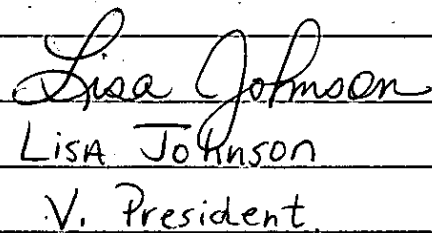 Lisa Johnson
LISA JOHNSON
V. President